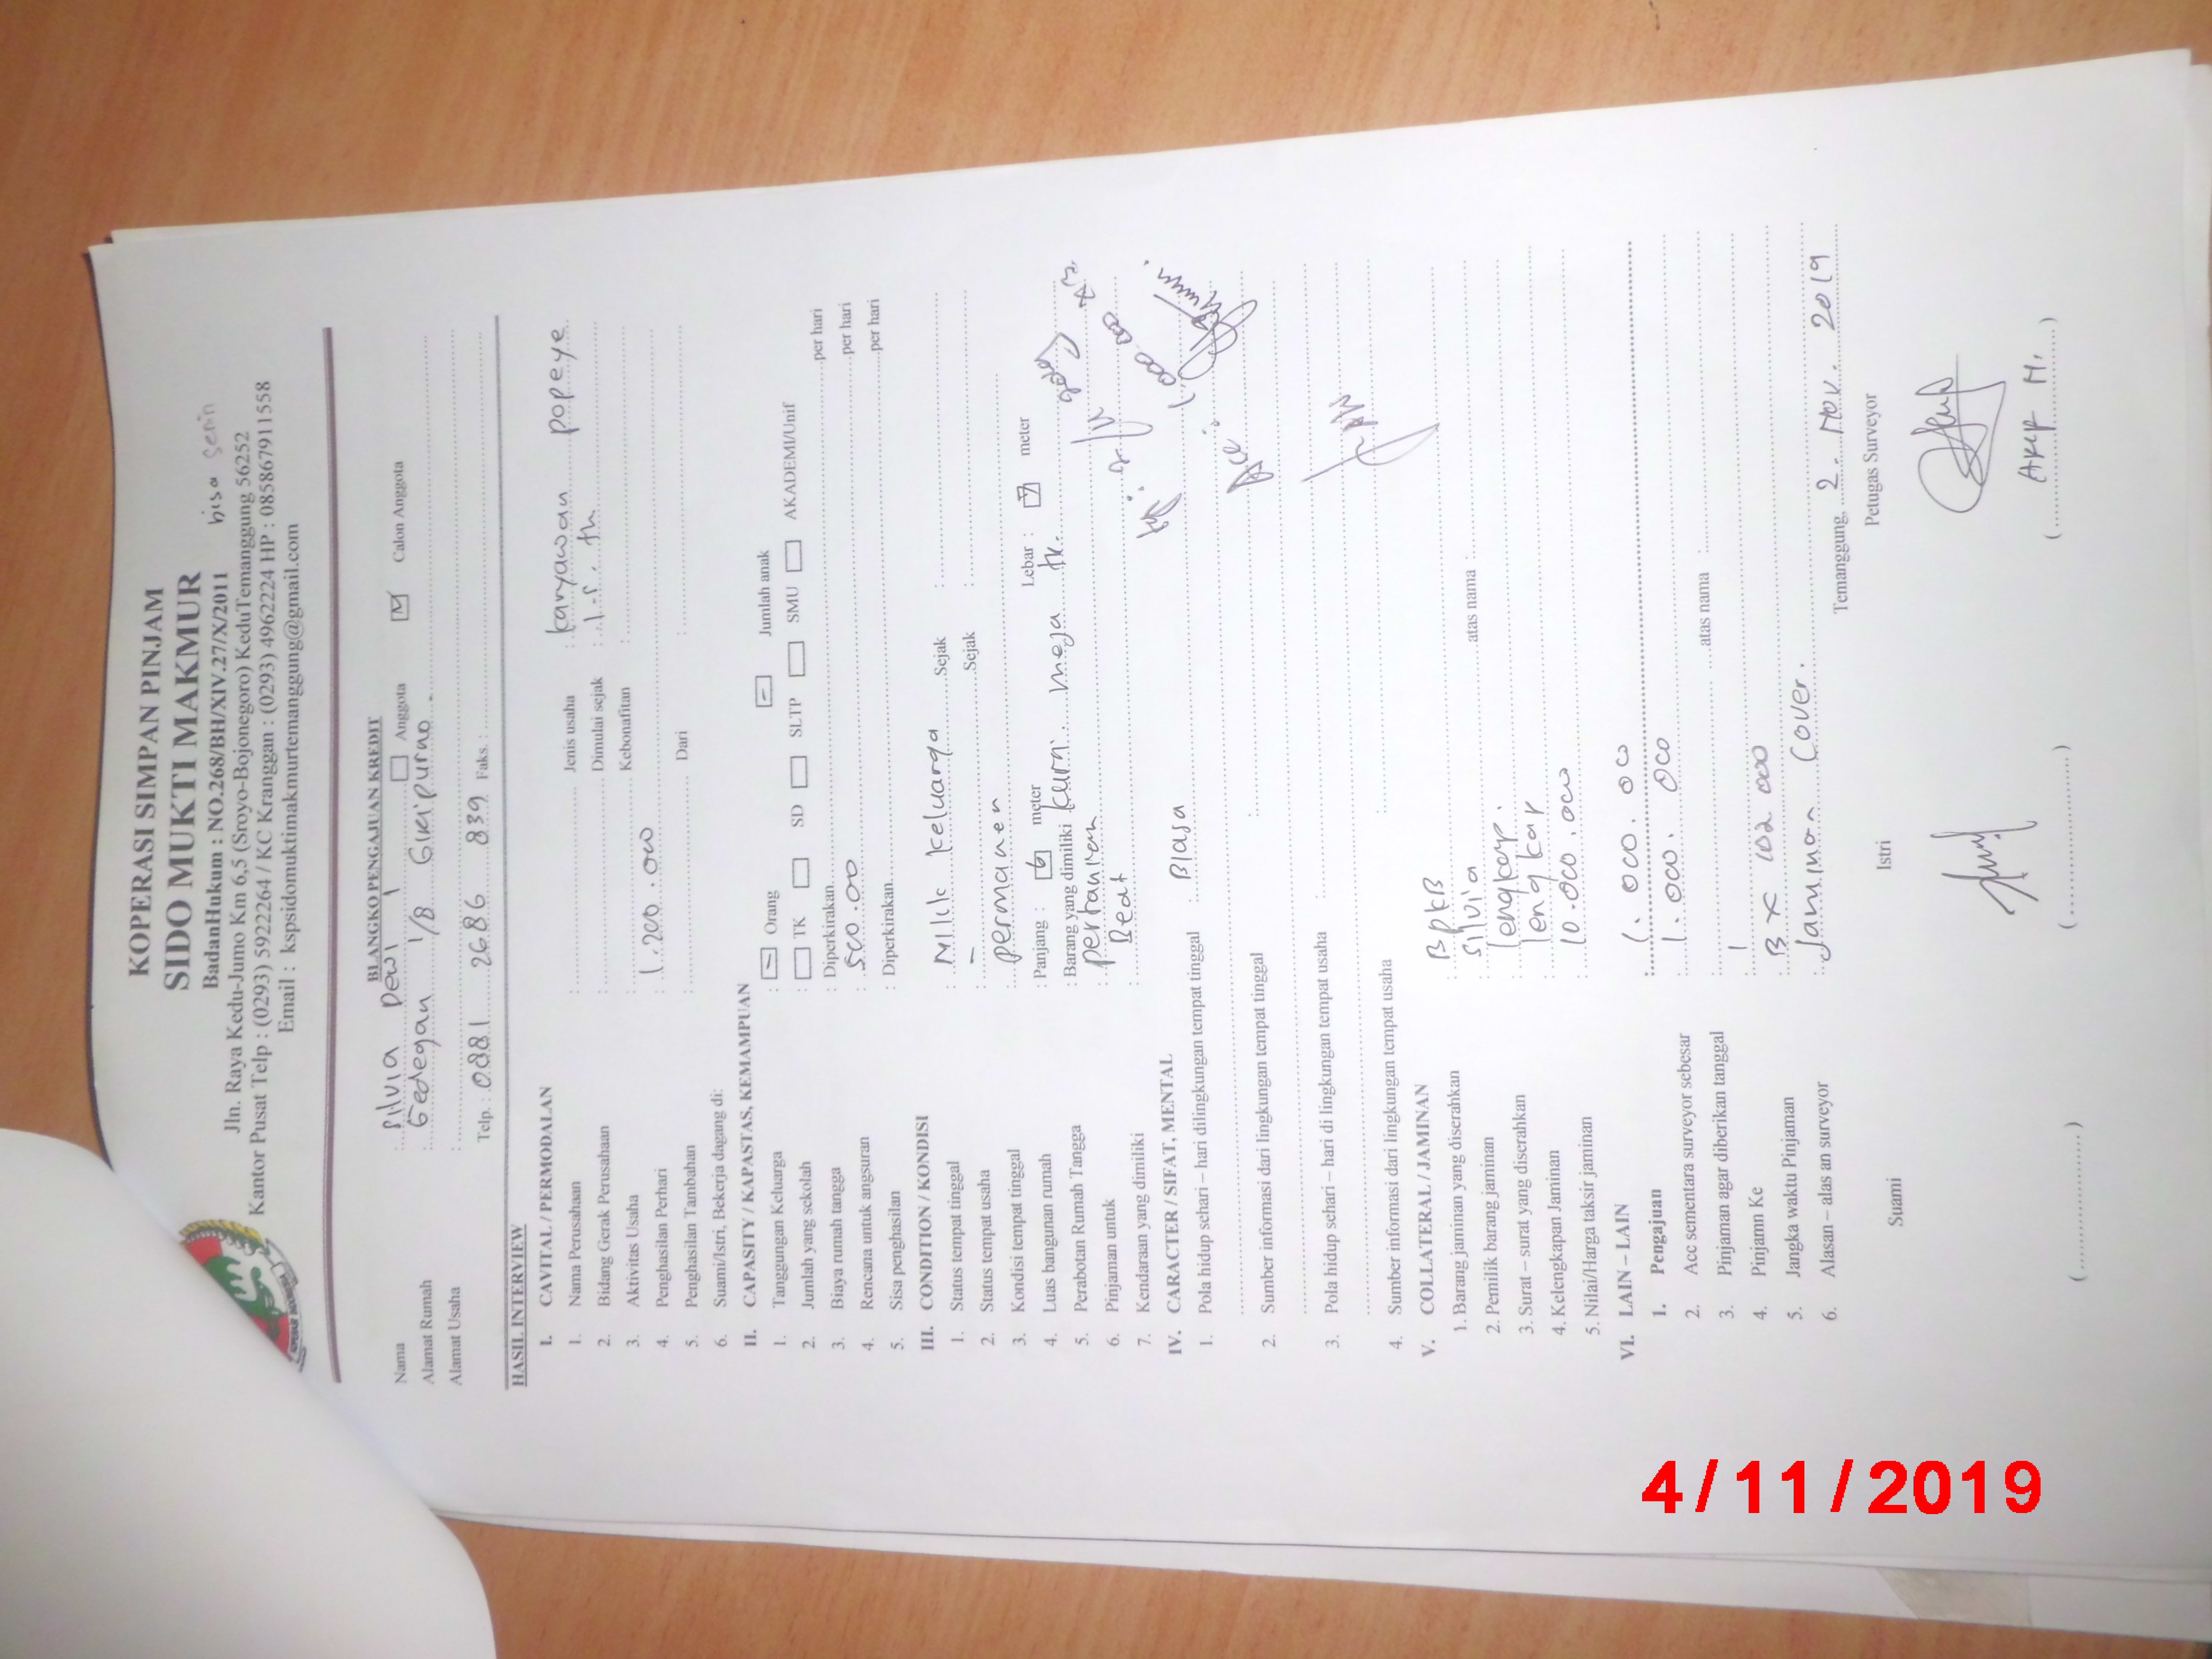 KOPERASI SIMPAN PINJAM
SIDO MUKTI MAKMUR
BadanHukum : NO.268/BH/XIV.27/X/2011 bisa senin
Jln. Raya Kedu-Jumo Km 6,5 (Sroyo-Bojonegoro) KeduTemanggung 56252
Kantor Pusat Telp : (0293) 5922264 / KC Kranggan : (0293) 4962224 HP : 085867911558
Email : kspsidomuktimakmurtemanggung@gmail.com
BLANGKO PENGAJUAN KREDIT
Nama : Silvia Dewi 1 Anggota Calon Anggota
Alamat Rumah : Gedegan 1/8 Giripurno.
Alamat Usaha :
Telp. : 0881 2686 839 Faks. :
HASIL INTERVIEW
I. CAVITAL / PERMODALAN
1. Nama Perusahaan : Jenis usaha : karyawan popeye
2. Bidang Gerak Perusahaan : Dimulai sejak : 1.5. th
3. Aktivitas Usaha : Kebonafitan :
4. Penghasilan Perhari : 1.200.000
5. Penghasilan Tambahan : Dari :
6. Suami/Istri, Bekerja dagang di:
II. CAPASITY / KAPASTAS, KEMAMPUAN
1. Tanggungan Keluarga : - Orang - Jumlah anak
2. Jumlah yang sekolah : TK SD SLTP SMU AKADEMI/Unif
3. Biaya rumah tangga : Diperkirakan per hari
4. Rencana untuk angsuran : 500.00 per hari
5. Sisa penghasilan : Diperkirakan per hari
III. CONDITION / KONDISI
1. Status tempat tinggal : Milik keluarga Sejak :
2. Status tempat usaha : - Sejak :
3. Kondisi tempat tinggal : permanen
4. Luas bangunan rumah : Panjang : 6 meter Lebar : 7 meter
5. Perabotan Rumah Tangga : Barang yang dimiliki kursi meja tv.
6. Pinjaman untuk : pertanian
7. Kendaraan yang dimiliki : Beat
IV. CARACTER / SIFAT, MENTAL
1. Pola hidup sehari – hari dilingkungan tempat tinggal : Biasa
1.000.000
Acc :
2. Sumber informasi dari lingkungan tempat tinggal :
3. Pola hidup sehari – hari di lingkungan tempat usaha :
4. Sumber informasi dari lingkungan tempat usaha :
V. COLLATERAL / JAMINAN
1. Barang jaminan yang diserahkan : BPKB
2. Pemilik barang jaminan : Silvia atas nama :
3. Surat – surat yang diserahkan : lengkap.
4. Kelengkapan Jaminan : lengkap
5. Nilai/Harga taksir jaminan : 10.000.000
VI. LAIN – LAIN
1. Pengajuan : 1.000.00
2. Acc sementara surveyor sebesar : 1.000.000
3. Pinjaman agar diberikan tanggal : atas nama :
4. Pinjamn Ke : 1
5. Jangka waktu Pinjaman : B x 102 000
6. Alasan – alas an surveyor : Jaminan Cover.
Temanggung, 2. Nov. 2019
Suami Istri Petugas Surveyor
(...............) (...............) (...... H. ......)
4/11/2019